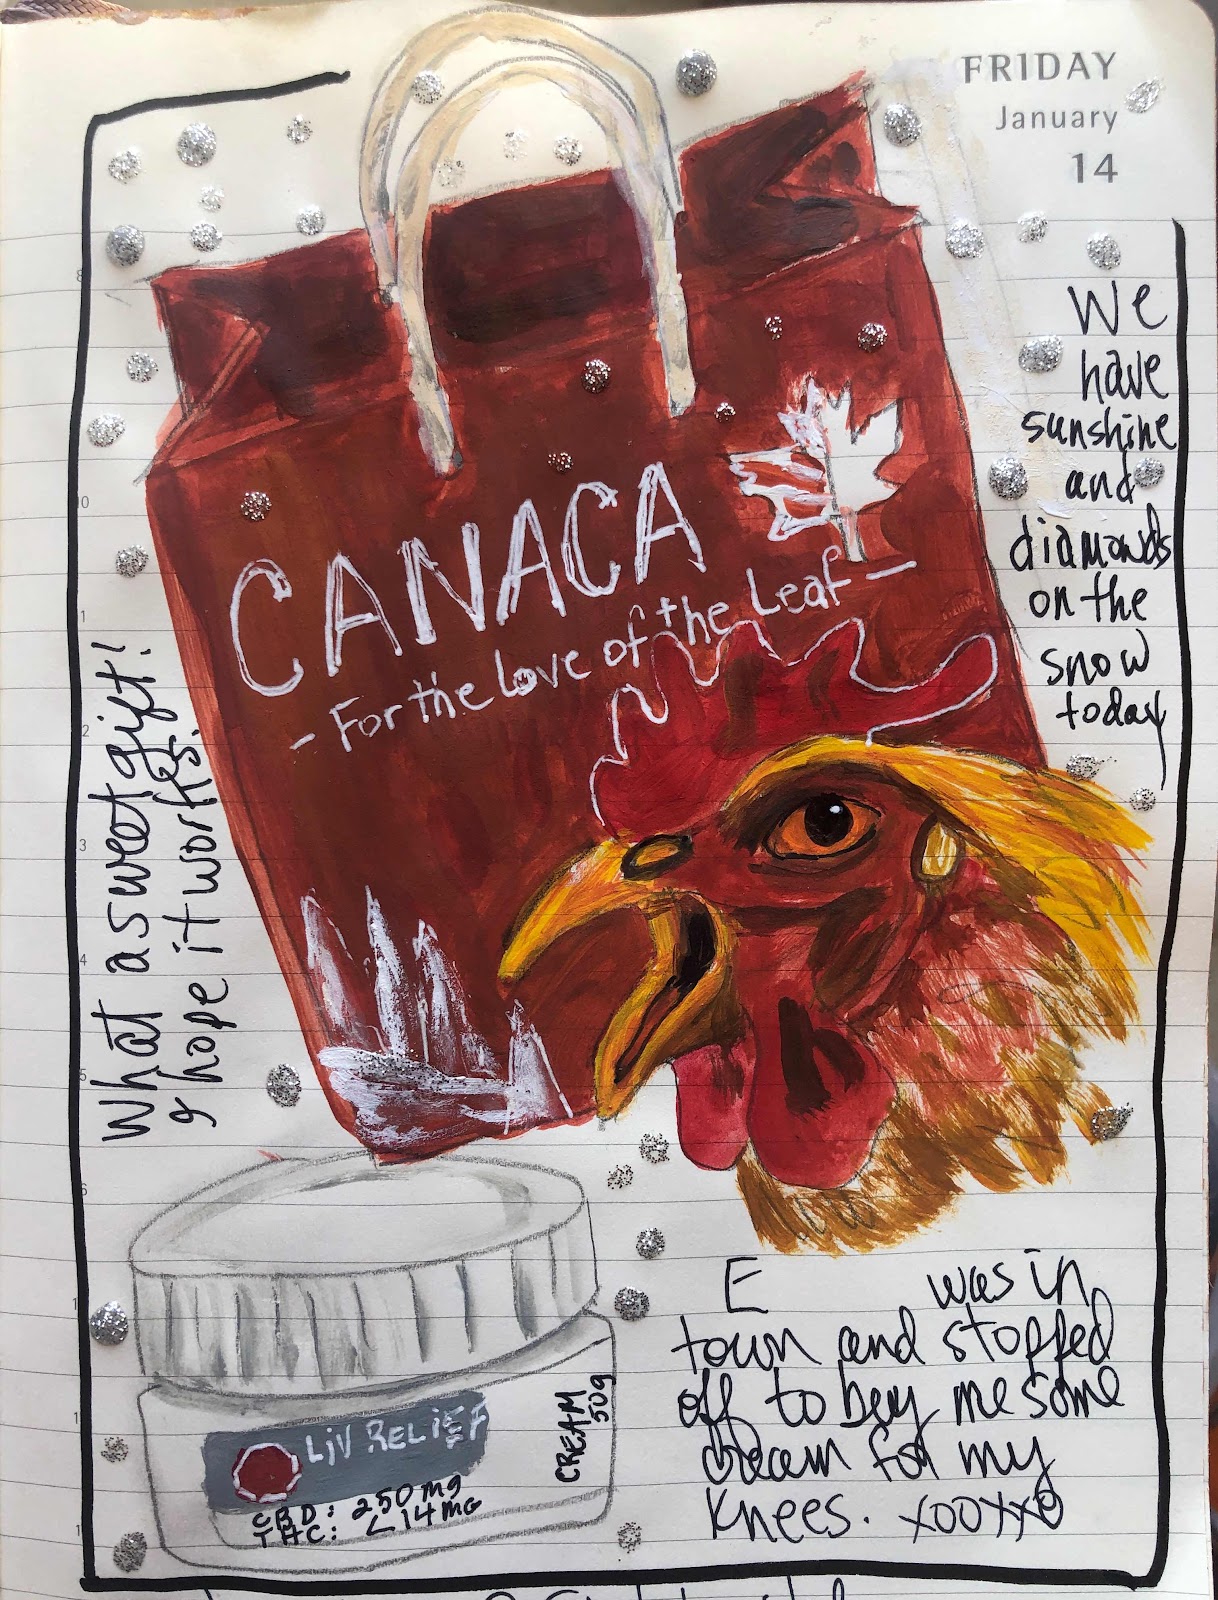 FRIDAY
January
14
We
have
sunshine
and
diamonds
on the
snow
today
CANACA
- For the Love of the Leaf -
What a sweet gift!
& hope it works.
E was in
town and stopped
off to buy me some
cream for my
knees. xooxxo
LIV RELIEF
CBD: 250mg
THC: <14mg
CREAM
50g
8
10
11
2
3
4
5
6